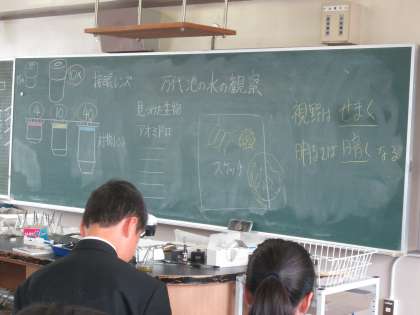 10x
接眼レンズ
4
10
40
対物レンズ
万代池の水の観察
見つけた生物
アオミドロ
スケッチ
視野は せまく
明るさは 暗く なる